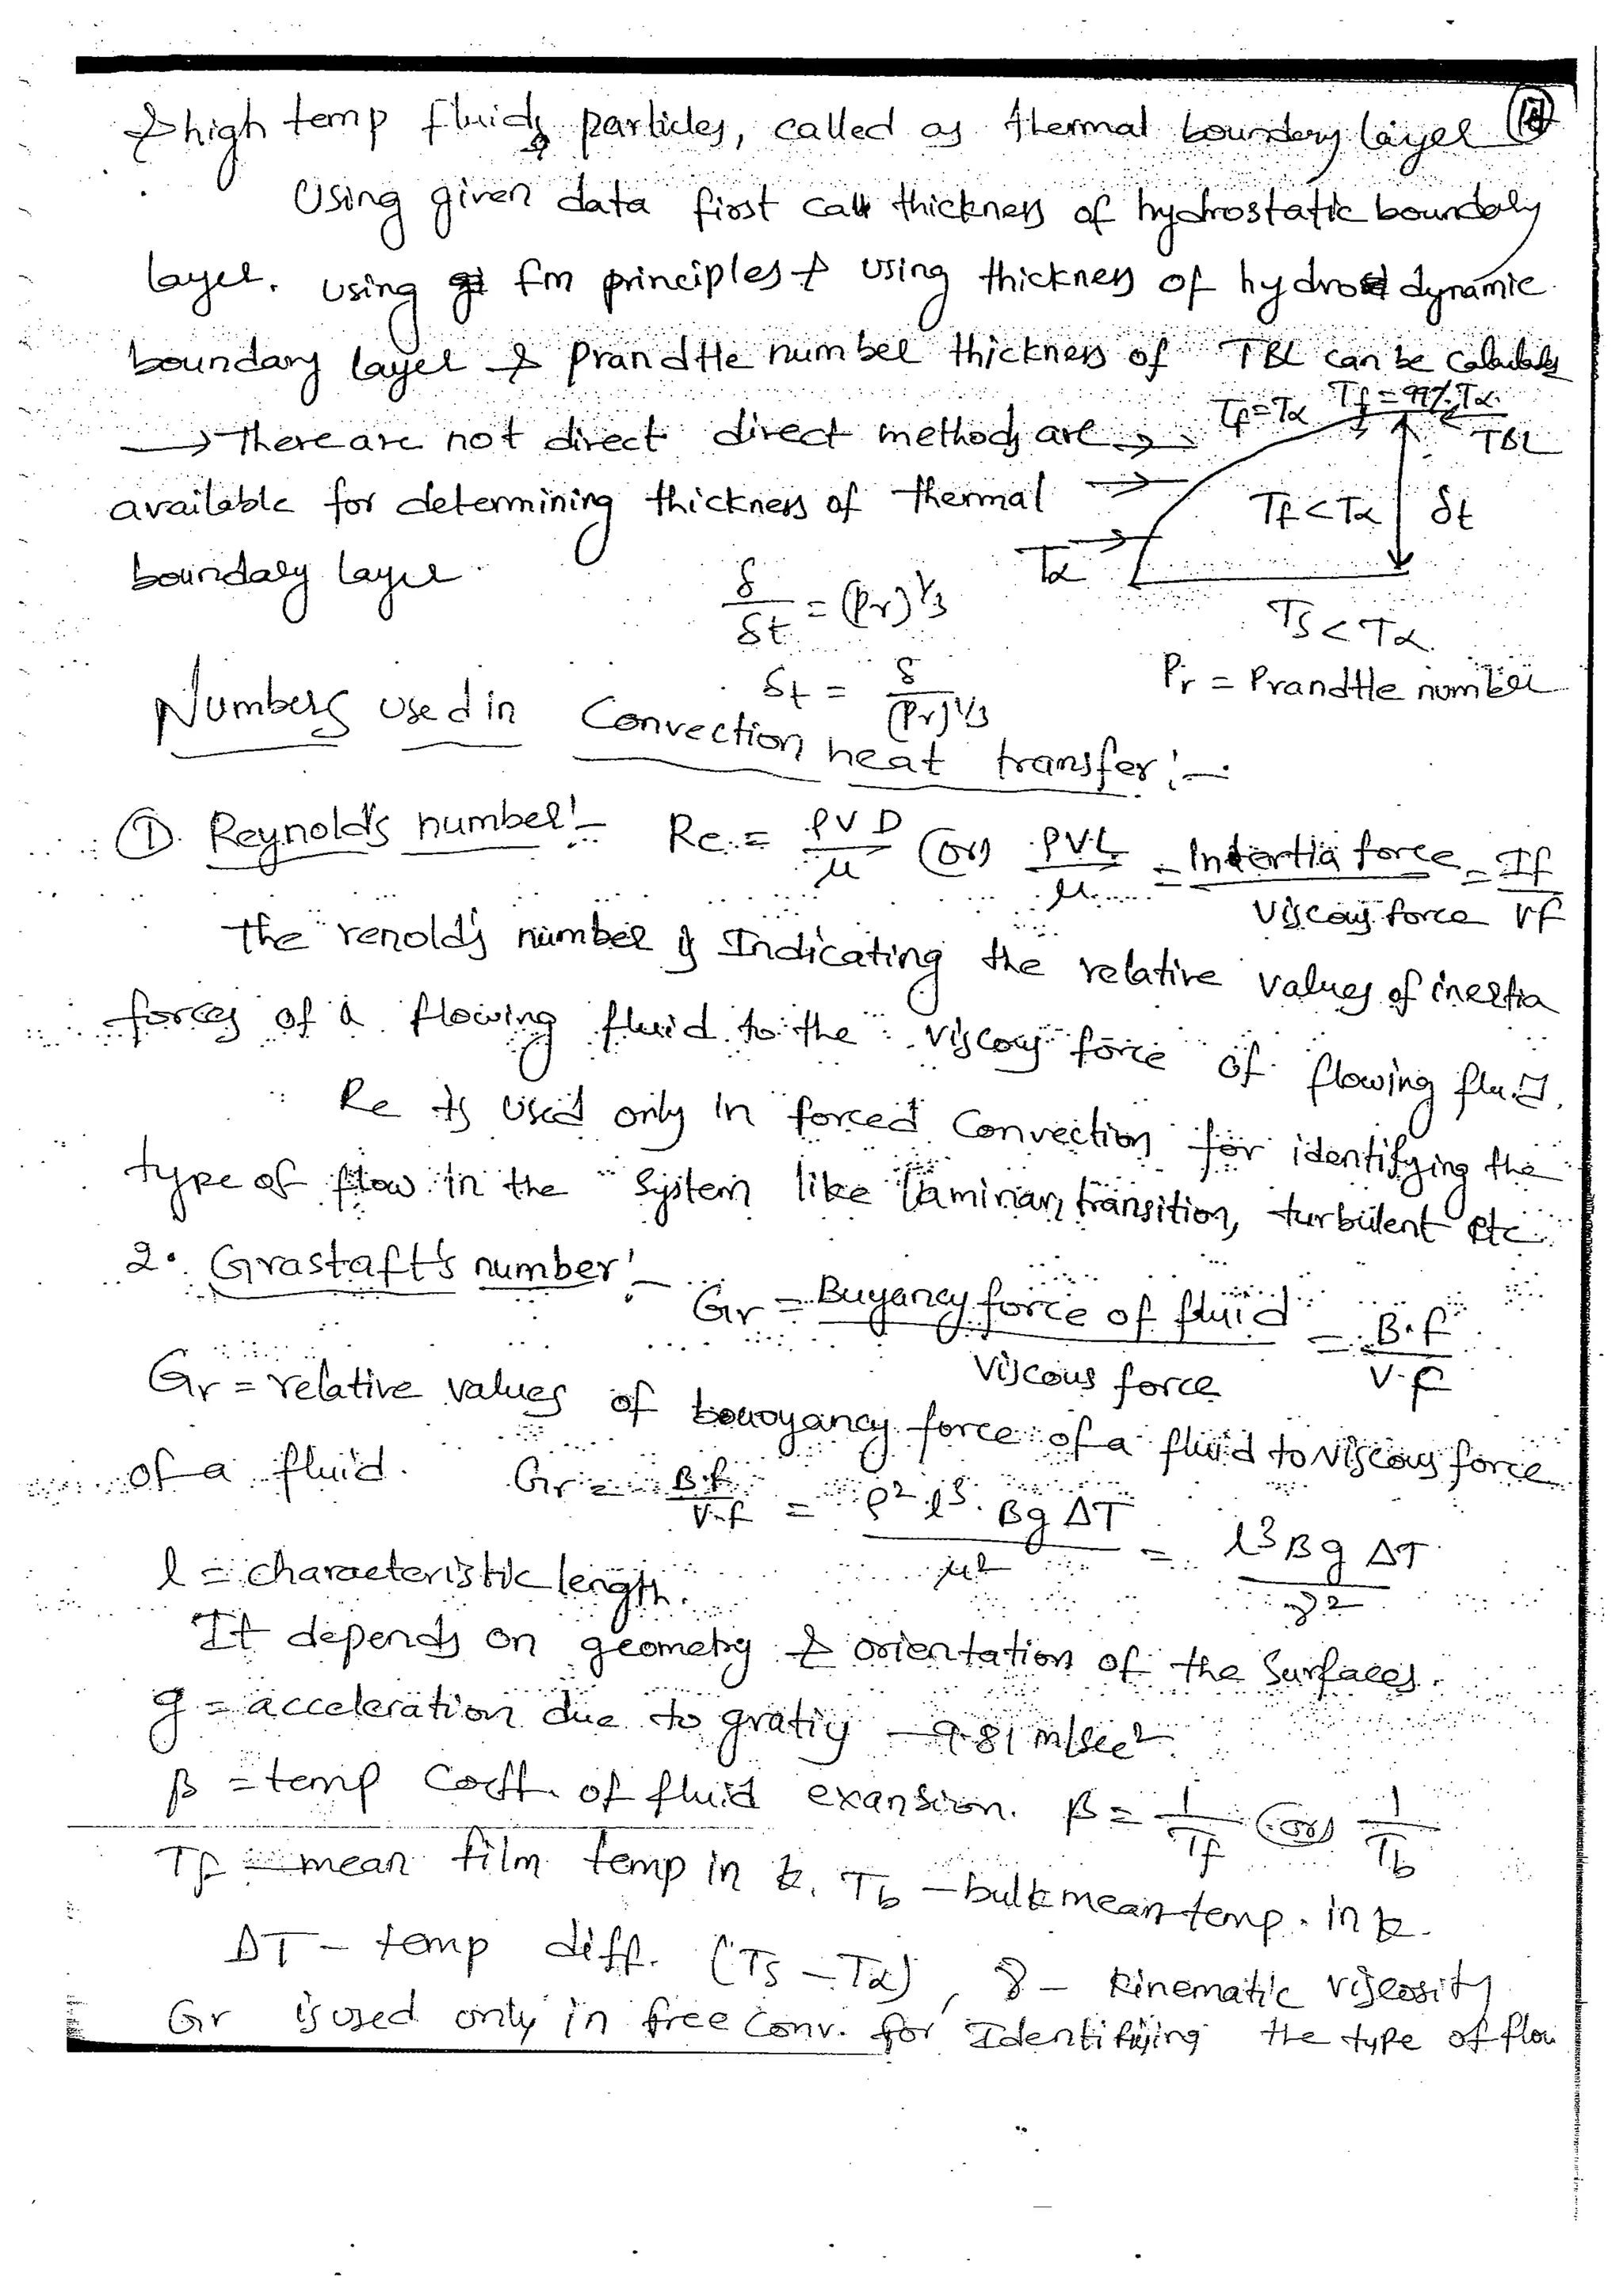 & high temp fluids particles, called as thermal boundary layer
Using given data first calc thickness of hydrostatic boundary
layer. using fm principles & using thickness of hydrodynamic
boundary layer & prandtle number thickness of TBL can be calculated
→ There are not direct direct methods are
Tf=Tα Tf=99%Tα
TBL
available for determining thickness of thermal
Tf<Tα δt
boundary layer.
Tα
δ/δt = (Pr)^1/3
Ts<Tα
δt = δ/(Pr)^1/3
Pr = Prandtle number
Numbers used in Convection heat transfer:-
① Reynold's number:- Re = ρVD/μ (or) ρVL/μ = Intertia force/Viscous force = If/Vf
The renold's number is Indicating the relative values of inertia
forces of a flowing fluid to the viscous force of flowing fluid.
Re is used only in forced Convection for identifying the
type of flow in the system like laminar, transition, turbulent etc.
2. Grastaft's number:- Gr = Buyancy force of fluid/Viscous force = B.f/V.f
Gr = relative values of bouoyancy force of a fluid to viscous force
of a fluid. Gr = B.f/V.f = ρ² l³. βg ΔT/μ² = l³ βg ΔT/ϑ²
l = characteristic length.
It depends on geometry & orientation of the surfaces.
g = acceleration due to gratiy - 9.81 m/sec²
β = temp coeff. of fluid exansion. β = 1/Tf (or) 1/Tb
Tf = mean film temp in k, Tb - bulk mean temp. in k.
ΔT - temp diff. (Ts - Tα), ϑ - kinematic viscosity
Gr is used only in free conv. for Identifying the type of flow